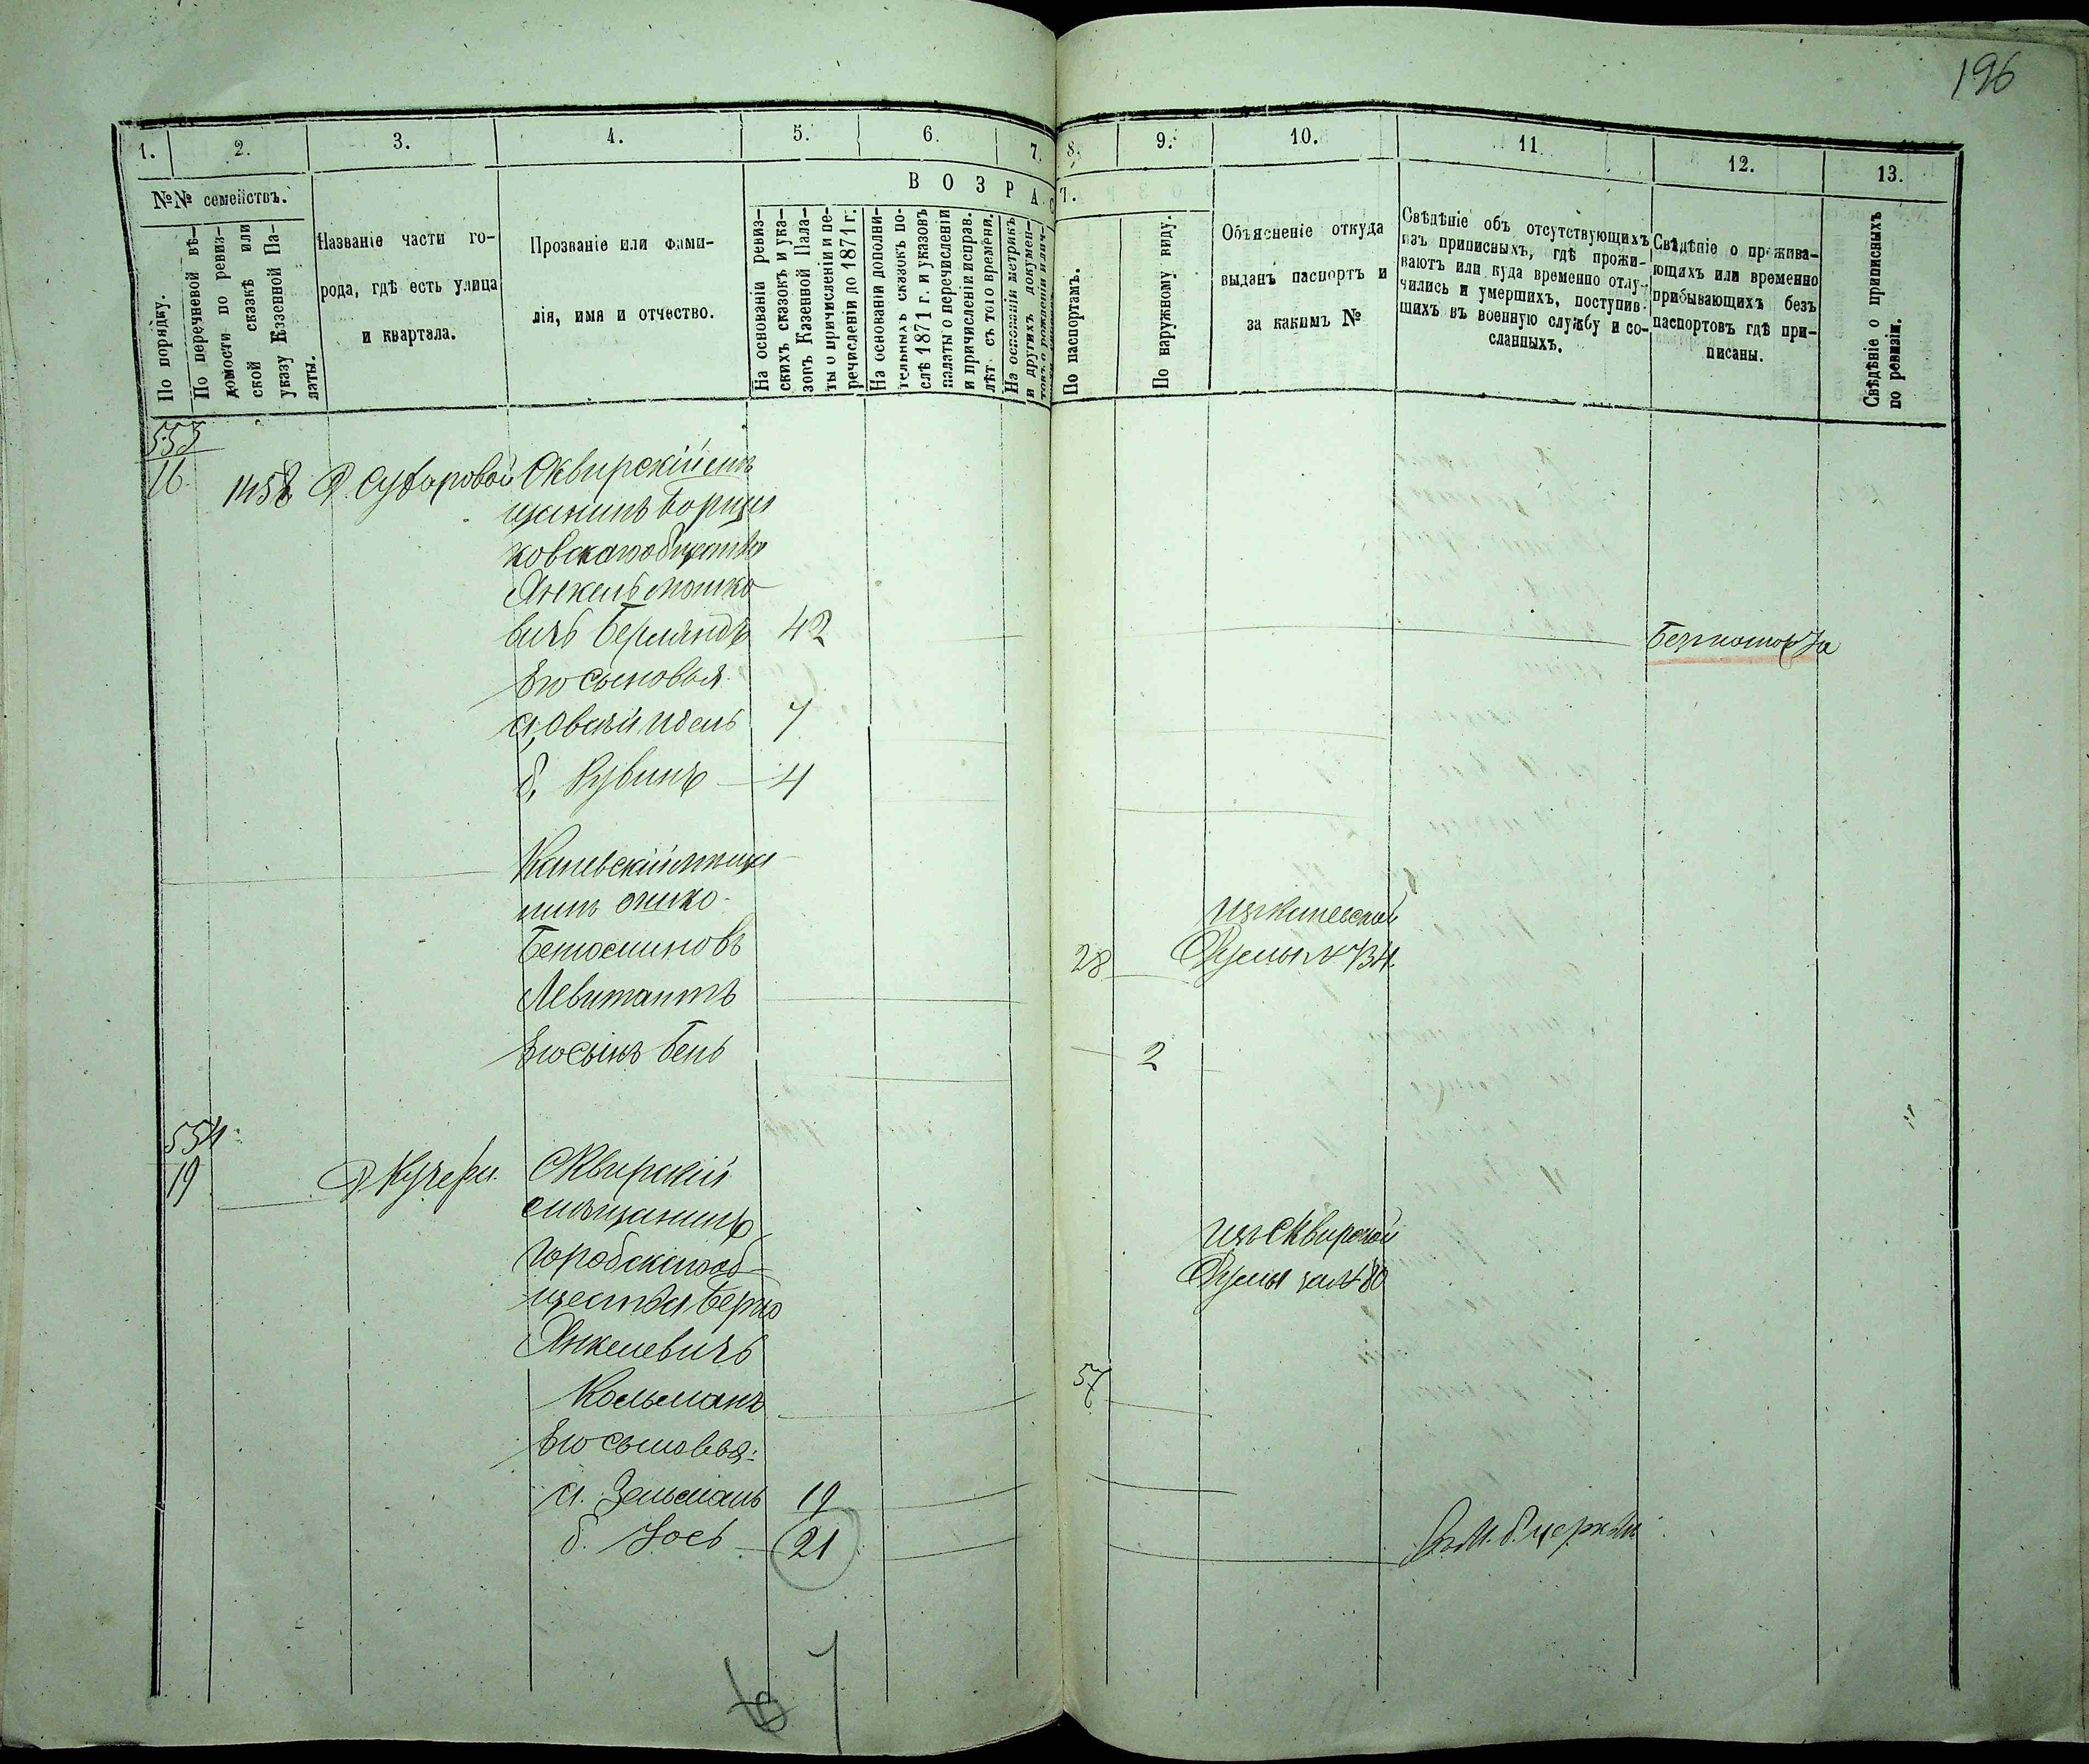 196
1.
2.
3.
4.
5.
6.
7.
8.
9.
10.
11.
12.
13.
№№ семействъ.
По порядку.
По перечневой вѣ-
домости по ревиз-
ской сказкѣ или
указу Казенной Па-
латы.
Названіе части го-
рода, гдѣ есть улица
и квартала.
Прозваніе или фами-
лія, имя и отчество.
ВОЗРАС
На основаніи ревиз-
скихъ сказокъ и ука-
зовъ Казенной Пала-
ты о причисленіи и пе-
речисленіи до 1871 г.
На основаніи дополни-
тельныхъ сказокъ по-
слѣ 1871 г. и указовъ
палаты о перечисленіи
и причисленіи исправ.
лѣт съ того времени.
На основаніи метрикъ
и другихъ докумен-
товъ о рожденіи и лич-
Т.
По паспортамъ.
По наружному виду.
Объясненіе откуда
выданъ паспортъ и
за какимъ №
Свѣдѣніе объ отсутствующихъ
изъ приписныхъ, гдѣ прожи-
ваютъ или куда временно отлу-
чились и умершихъ, поступив-
шихъ въ военную службу и со-
сланныхъ.
Свѣдѣніе о прожива-
ющихъ или временно
прибывающихъ безъ
паспортовъ гдѣ при-
писаны.
Свѣдѣніе о приписныхъ
по ревизіи.
553
16
1458
Сквирскій
Янкель Мошко
вичъ Берляндъ 42
Его сыновья
а, Овсій Идель 7
б, Рувинъ 4
Каневскій мѣща
нинъ
Левитантъ 28
изъ Каневской
Думы № 734.
Его сынъ Бень 2
554
19
Д. Кучера
Сквирскій
мѣщанинъ
общества Берко
Янкелевичъ
Кольманъ 57
изъ Сквирской
Думы за № 80
Его сыновья:
а. Зельманъ 19
б. Іось 21
Въ М. Б. Церкви